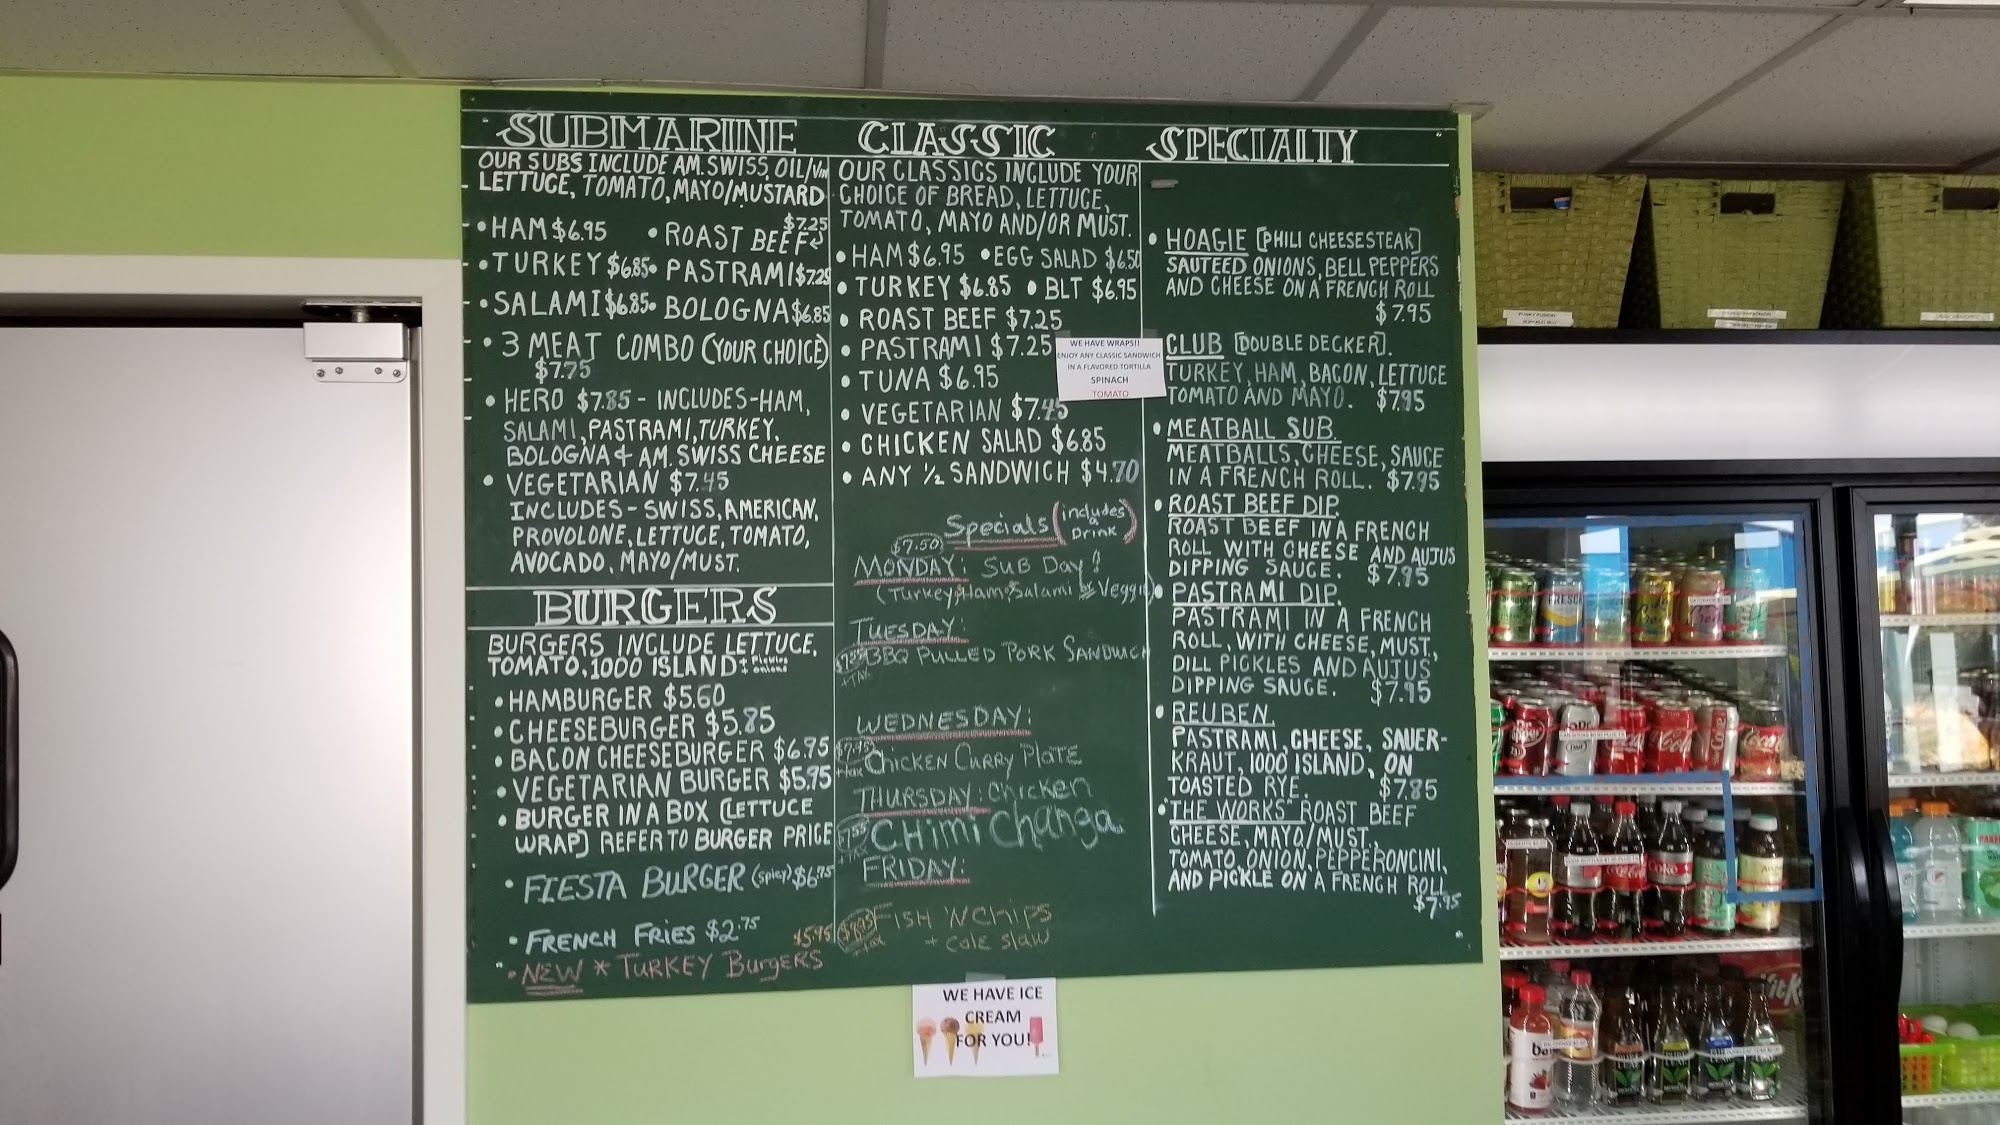 SUBMARINE
OUR SUBS INCLUDE AM. SWISS, OIL/Vin
LETTUCE, TOMATO, MAYO/MUSTARD
• HAM $6.95 • ROAST BEEF $7.25
• TURKEY $6.85 • PASTRAMI $7.25
• SALAMI $6.85 • BOLOGNA $6.85
• 3 MEAT COMBO (YOUR CHOICE)
$7.75
• HERO $7.85 - INCLUDES - HAM,
SALAMI, PASTRAMI, TURKEY.
BOLOGNA & AM. SWISS CHEESE
• VEGETARIAN $7.45
INCLUDES - SWISS, AMERICAN,
PROVOLONE, LETTUCE, TOMATO,
AVOCADO, MAYO/MUST.
BURGERS
BURGERS INCLUDE LETTUCE,
TOMATO, 1000 ISLAND + Pickles + onions
• HAMBURGER $5.60
• CHEESEBURGER $5.85
• BACON CHEESEBURGER $6.75
• VEGETARIAN BURGER $5.95
• BURGER IN A BOX [LETTUCE
WRAP] REFER TO BURGER PRICE
• FIESTA BURGER (spicy) $6.75
• FRENCH FRIES $2.75
$5.95
• NEW * TURKEY BurgERS
CLASSIC
OUR CLASSICS INCLUDE YOUR
CHOICE OF BREAD, LETTUCE,
TOMATO, MAYO AND/OR MUST.
• HAM $6.95 • EGG SALAD $6.50
• TURKEY $6.85 • BLT $6.95
• ROAST BEEF $7.25
• PASTRAMI $7.25
• TUNA $6.95
• VEGETARIAN $7.45
• CHICKEN SALAD $6.85
• ANY 1/2 SANDWICH $4.70
Specials (includes a Drink)
$7.50
MONDAY: SUB DAY!
(Turkey, Ham, Salami or Veggie)
TUESDAY:
+TAX BBQ PULLED PORK SANDWICH
WEDNESDAY:
$7.95 +tax Chicken Curry Plate
THURSDAY: Chicken
$7.55 +TAX CHimi Changa
FRIDAY:
$8.95 +tax FISH 'N CHIPS
+ Cole slaw
WE HAVE WRAPS!!
ENJOY ANY CLASSIC SANDWICH
IN A FLAVORED TORTILLA
SPINACH
TOMATO
SPECIALTY
• HOAGIE [PHILI CHEESESTEAK]
SAUTEED ONIONS, BELL PEPPERS
AND CHEESE ON A FRENCH ROLL
$7.95
CLUB [DOUBLE DECKER].
TURKEY, HAM, BACON, LETTUCE
TOMATO AND MAYO. $7.95
• MEATBALL SUB.
MEATBALLS, CHEESE, SAUCE
IN A FRENCH ROLL. $7.95
• ROAST BEEF DIP.
ROAST BEEF IN A FRENCH
ROLL WITH CHEESE AND AUJUS
DIPPING SAUCE. $7.95
• PASTRAMI DIP.
PASTRAMI IN A FRENCH
ROLL, WITH CHEESE, MUST.,
DILL PICKLES AND AUJUS
DIPPING SAUCE. $7.95
• REUBEN.
PASTRAMI, CHEESE, SAUER-
KRAUT, 1000 ISLAND, ON
TOASTED RYE. $7.85
• "THE WORKS" ROAST BEEF
CHEESE, MAYO/MUST.,
TOMATO, ONION, PEPPERONCINI,
AND PICKLE ON A FRENCH ROLL
$7.95
WE HAVE ICE
CREAM
FOR YOU!
FRESCA
Coke